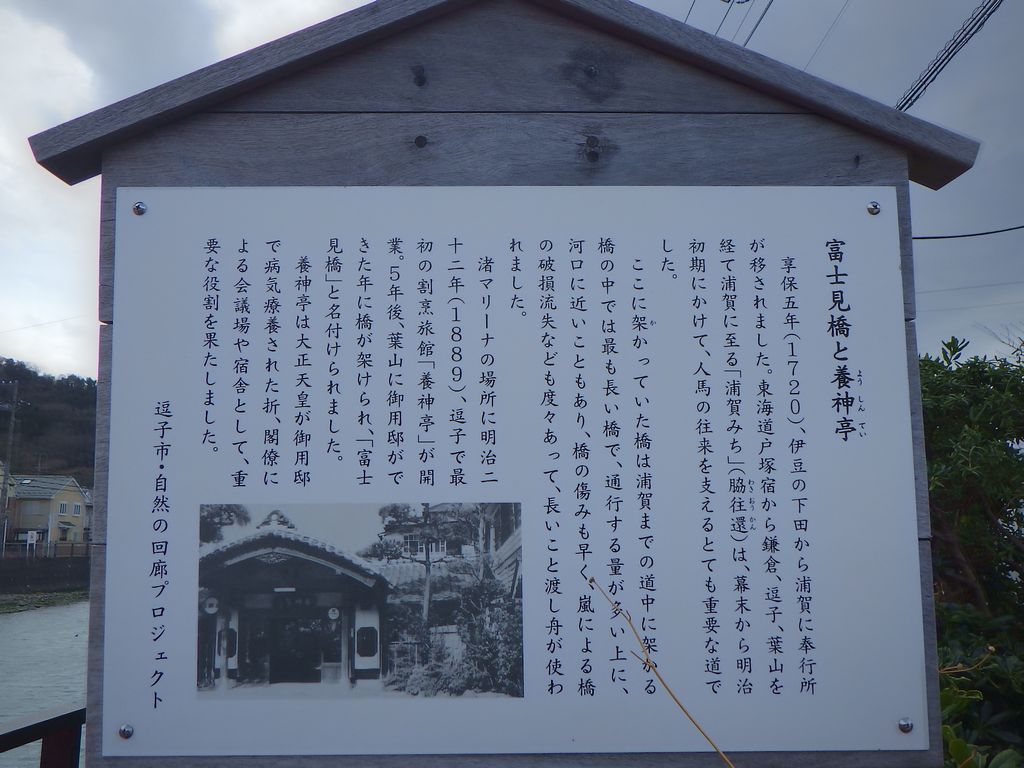 富士見橋と養神亭
ようしんてい
享保五年(1720)、伊豆の下田から浦賀に奉行所
が移されました。東海道戸塚宿から鎌倉、逗子、葉山を
経て浦賀に至る「浦賀みち」(脇往還)は、幕末から明治
わきおうかん
初期にかけて、人馬の往来を支えるとても重要な道で
した。
ここに架かっていた橋は浦賀までの道中に架かる
か
橋の中では最も長い橋で、通行する量が多い上に、
河口に近いこともあり、橋の傷みも早く、嵐による橋
の破損流失なども度々あって、長いこと渡し舟が使わ
れました。
渚マリーナの場所に明治二
十二年(1889)、逗子で最
初の割烹旅館「養神亭」が開
業。5年後、葉山に御用邸がで
きた年に橋が架けられ、「富士
見橋」と名付けられました。
養神亭は大正天皇が御用邸
で病気療養された折、閣僚に
よる会議場や宿舎として、重
要な役割を果たしました。
逗子市・自然の回廊プロジェクト